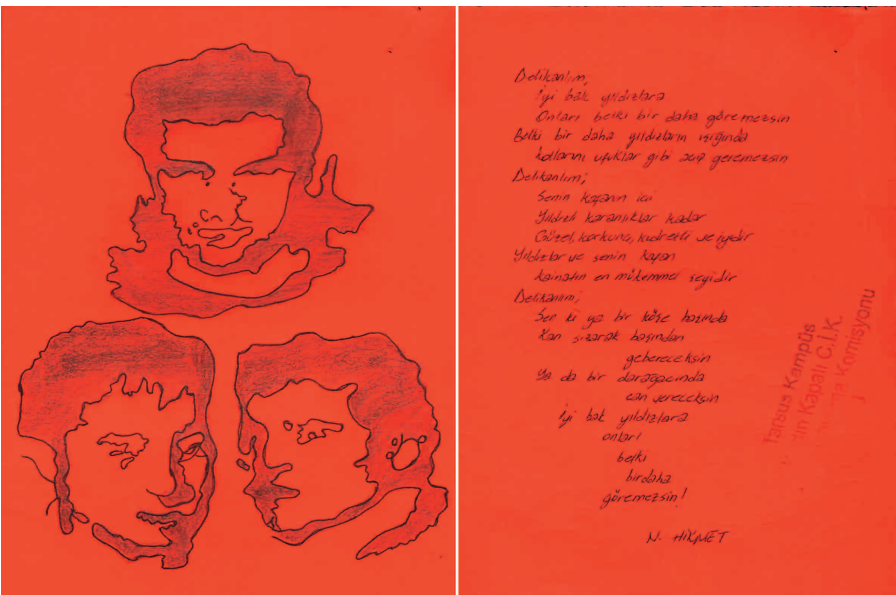 Delikanlım;
İyi bak yıldızlara
Onları belki bir daha göremezsin
Belki bir daha yıldızların ışığında
kollarını ufuklar gibi açıp geremezsin
Delikanlım;
Senin kafanın içi
Yıldızlı karanlıklar kadar
Güzel, korkunç, kudretli ve iyidir
Yıldızlar ve senin kafan
kainatın en mükemmel şeyidir
Delikanlım;
Sen ki ya bir köşe başında
Kan sızarak başından
gebereceksin
Ya da bir darağacında
can vereceksin
İyi bak yıldızlara
onları
belki
birdaha
göremezsin!
N. HİKMET
Tarsus Kampüs
Kapalı C.İ.K.
Komisyonu